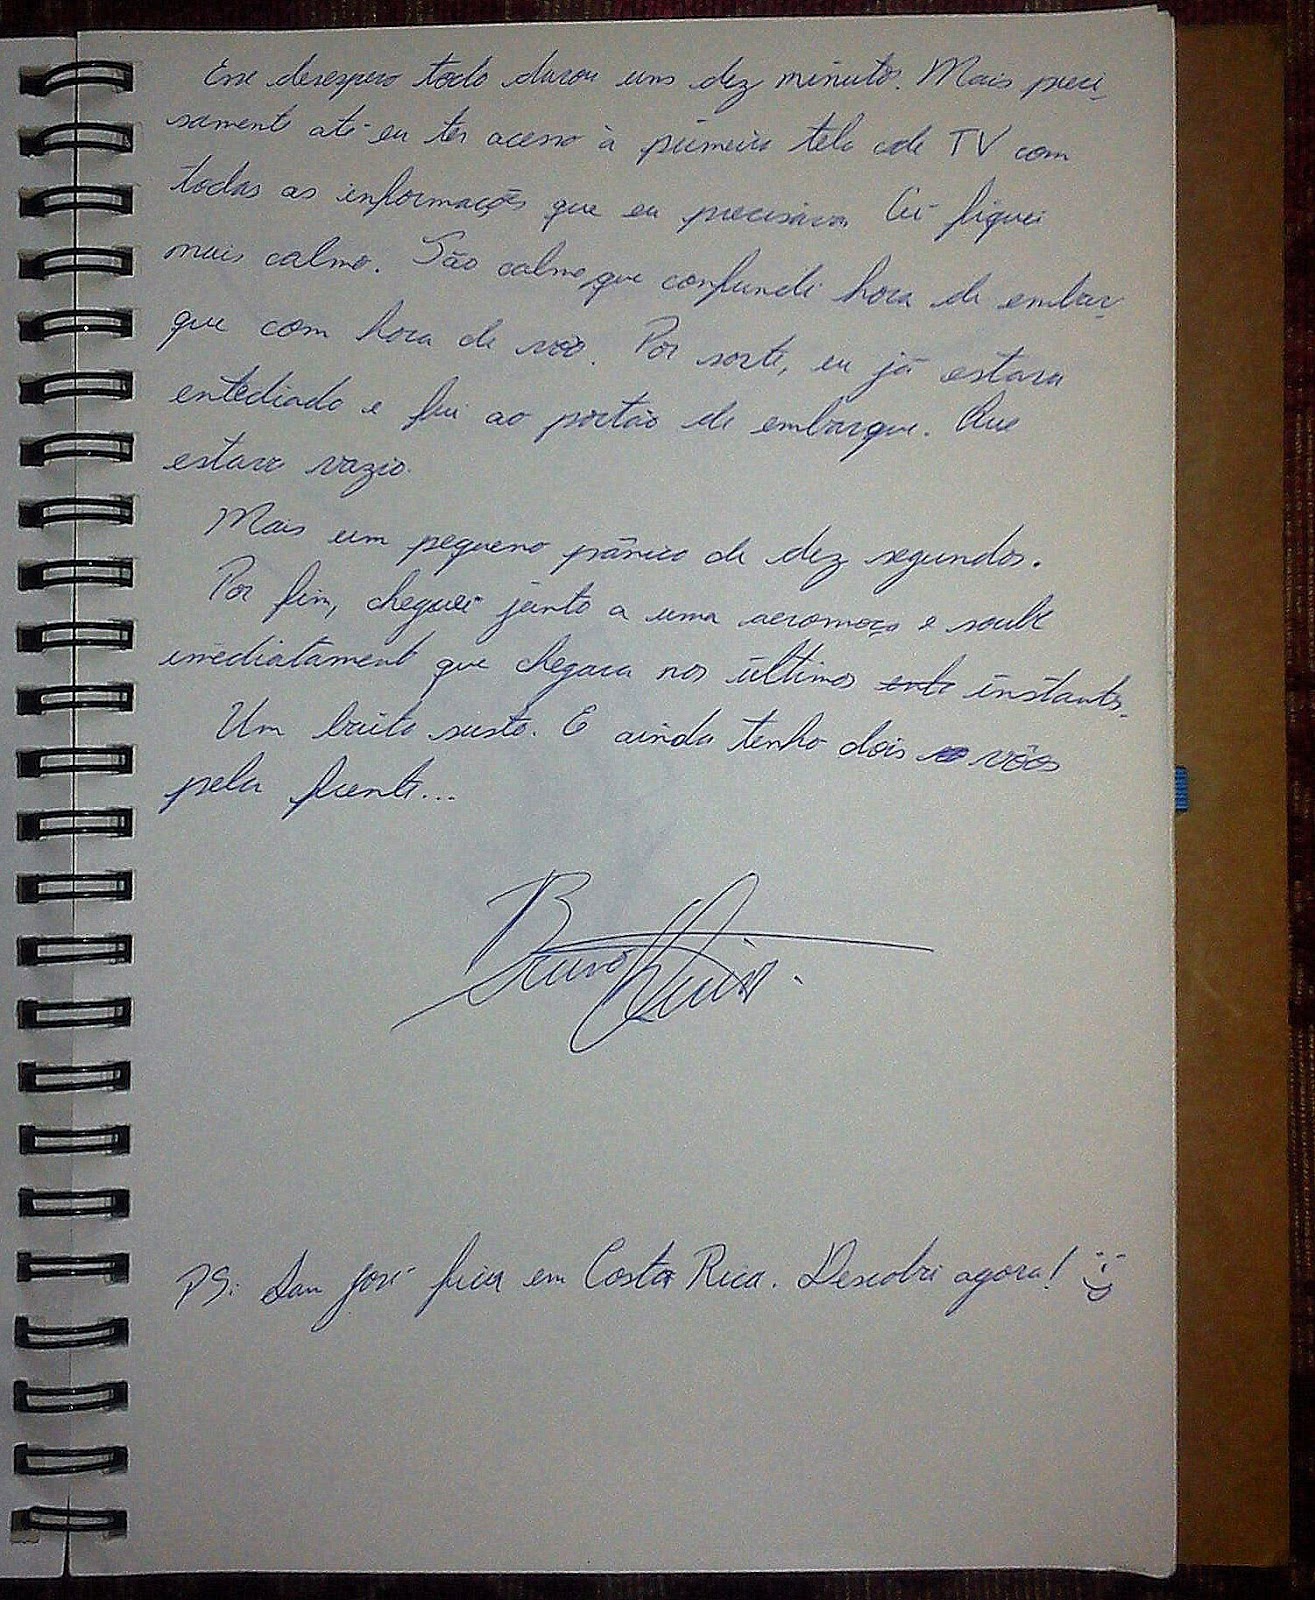 Esse desespero todo durou uns dez minutos. Mais preci-
samente até eu ter acesso à primeira tela de TV com
todas as informações que eu precisava. Aí fiquei
mais calmo. Tão calmo, que confundi hora de embar-
que com hora de vôo. Por sorte, eu já estava
entediado e fui ao portão de embarque. Que
estava vazio.
Mais um pequeno pânico de dez segundos.
Por fim, cheguei junto a uma aeromoça e soube
imediatamente que chegara nos últimos instantes.
Um baita susto. E ainda tenho dois vôos
pela frente...
Bruno
PS: San José fica em Costa Rica. Descobri agora!